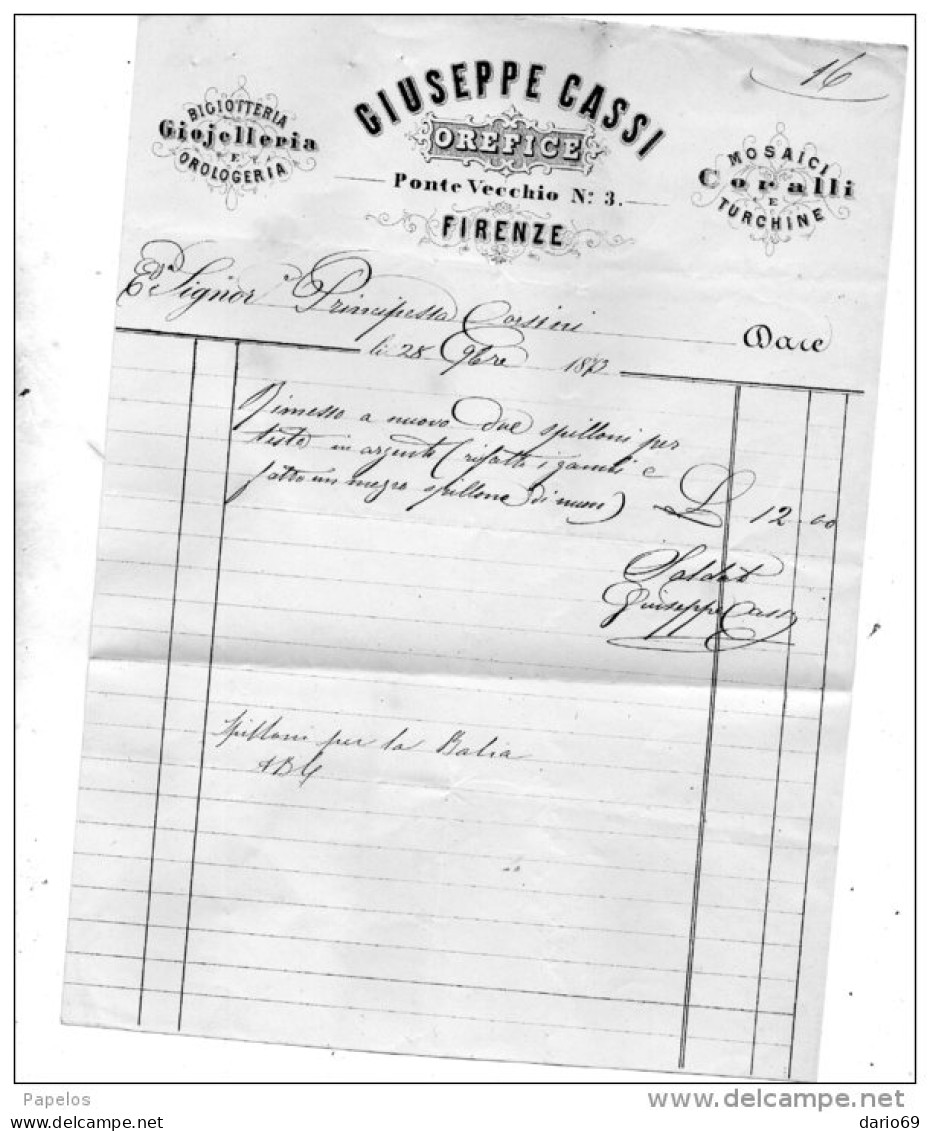 16
GIUSEPPE CASSI
BIGIOTTERIA
Giojelleria
E
OROLOGERIA
OREFICE
MOSAICI
Coralli
E
TURCHINE
Ponte Vecchio Nº 3.
FIRENZE
Signor Principessa Corsini
Dare
li 28 9bre 187
Rimesso a nuovo due spilloni per
testa in argento (rifatti i gambi e
fatto un mezzo spillone di nuovo) L 12.00
Saldato
Giuseppe Cassi
Spilloni per la Balia
Papelos
delcampe.net
dario69